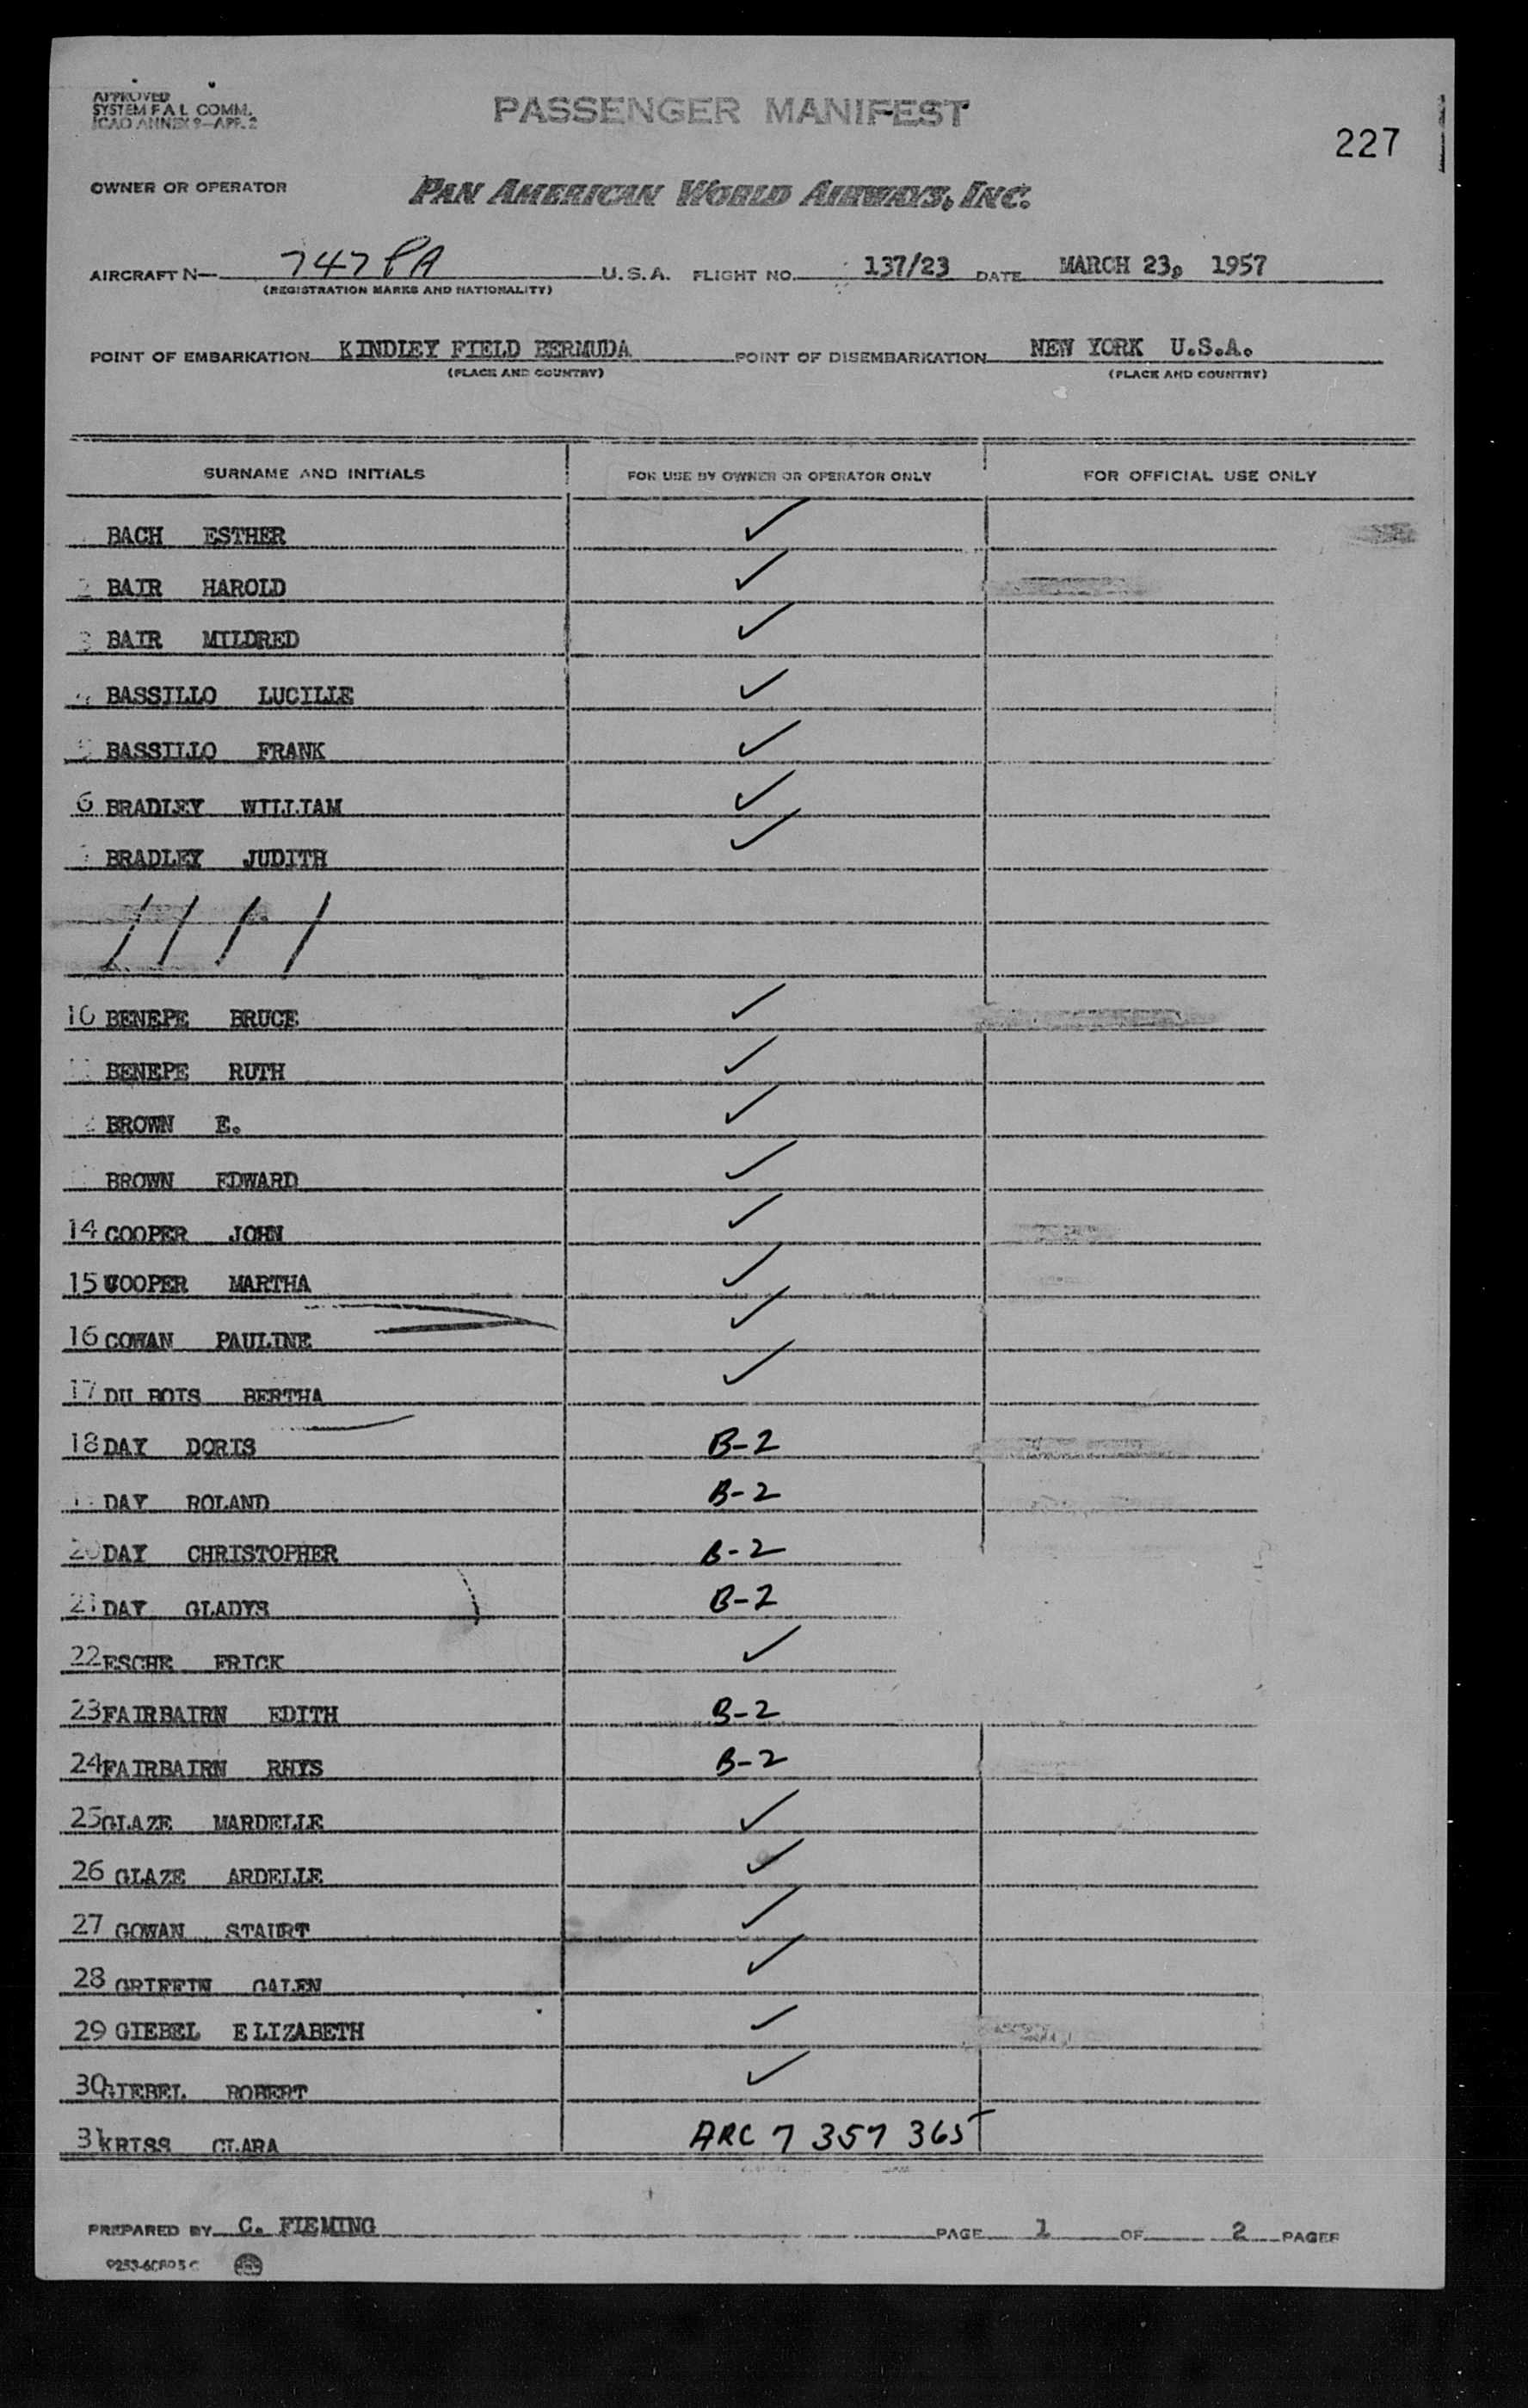 APPROVED
SYSTEM F.A.L. COMM.
ICAO ANNEX 9—APP. 2
PASSENGER MANIFEST
227
OWNER OR OPERATOR PAN AMERICAN WORLD AIRWAYS, INC.
AIRCRAFT N— 747 PA U.S.A. FLIGHT NO. 137/23 DATE MARCH 23, 1957
(REGISTRATION MARKS AND NATIONALITY)
POINT OF EMBARKATION KINDLEY FIELD BERMUDA POINT OF DISEMBARKATION NEW YORK U.S.A.
(PLACE AND COUNTRY) (PLACE AND COUNTRY)
SURNAME AND INITIALS FOR USE BY OWNER OR OPERATOR ONLY FOR OFFICIAL USE ONLY
BACH ESTHER ✓
2 BAIR HAROLD ✓
3 BAIR MILDRED ✓
4 BASSILLO LUCILLE ✓
5 BASSILLO FRANK ✓
6 BRADLEY WILLIAM ✓
BRADLEY JUDITH ✓
10 BENEPE BRUCE ✓
BENEPE RUTH ✓
BROWN E. ✓
BROWN EDWARD ✓
14 COOPER JOHN ✓
15 COOPER MARTHA ✓
16 COWAN PAULINE ✓
17 DU BOIS BERTHA ✓
18 DAY DORIS B-2
DAY ROLAND B-2
20 DAY CHRISTOPHER B-2
21 DAY GLADYS B-2
22 ESCHE ERICK ✓
23 FAIRBAIRN EDITH B-2
24 FAIRBAIRN RHYS B-2
25 GLAZE MARDELLE ✓
26 GLAZE ARDELLE ✓
27 GOWAN STAURT ✓
28 GRIFFIN GALEN ✓
29 GIEBEL ELIZABETH ✓
30 GIEBEL ROBERT ✓
31 KRISS CLARA ARC 7 357 365
PREPARED BY C. FLEMING PAGE 1 OF 2 PAGES